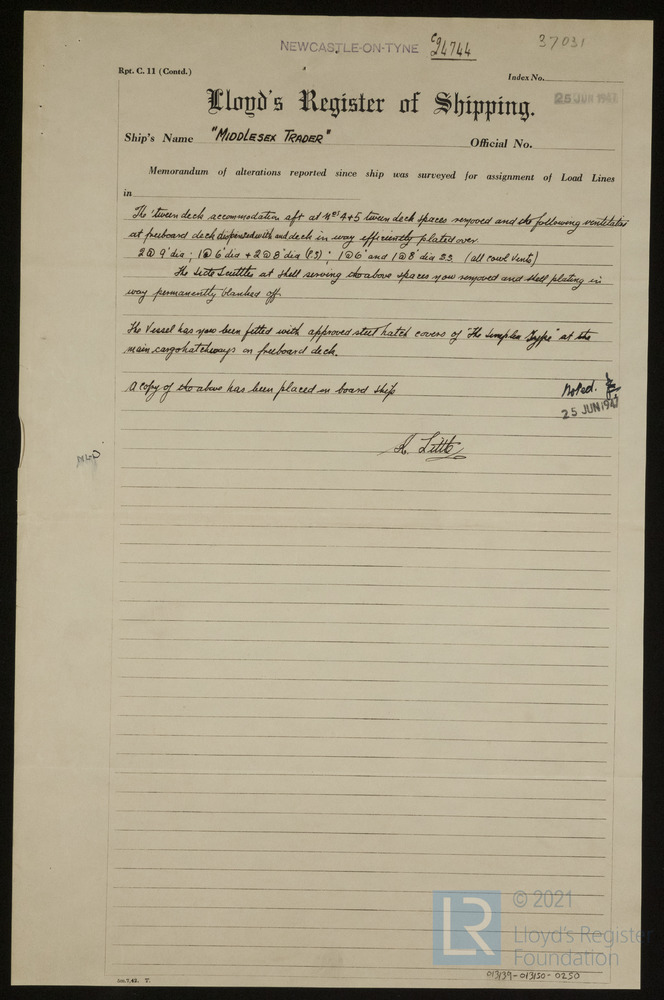 NEWCASTLE-ON-TYNE C 24744
37031
Rpt. C. 11 (Contd.)
Index No.
Lloyd's Register of Shipping.
25 JUN 1947
Ship's Name "MIDDLESEX TRADER"
Official No.
Memorandum of alterations reported since ship was surveyed for assignment of Load Lines
in
The 'tween deck accommodation aft at Nos 4+5 tween deck spaces removed and the following ventilator
at freeboard deck dispensed with and deck in way efficiently plated over.
2 @ 9" dia ; 1 @ 6" dia + 2 @ 8" dia (PS) ; 1 @ 6" and 1 @ 8" dia SS (all cowl vents)
The side scuttles at shell serving the above spaces now removed and shell plating in
way permanently blanked off.
The Vessel has now been fitted with approved steel hatch covers of "The Simplex Type" at the
main cargo hatchways on freeboard deck.
A copy of the above has been placed on board ship
Noted.
25 JUN 1947
Little
© 2021
LR
Lloyd's Register
Foundation
013139-013150-0250
5m.7.42. T.